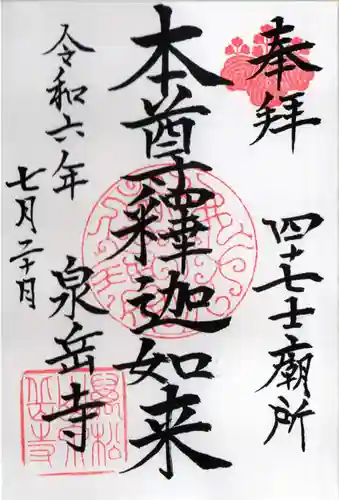 奉拝
四十七士廟所
本尊釋迦如来
令和六年
七月二十日
泉岳寺
萬松山泉岳寺